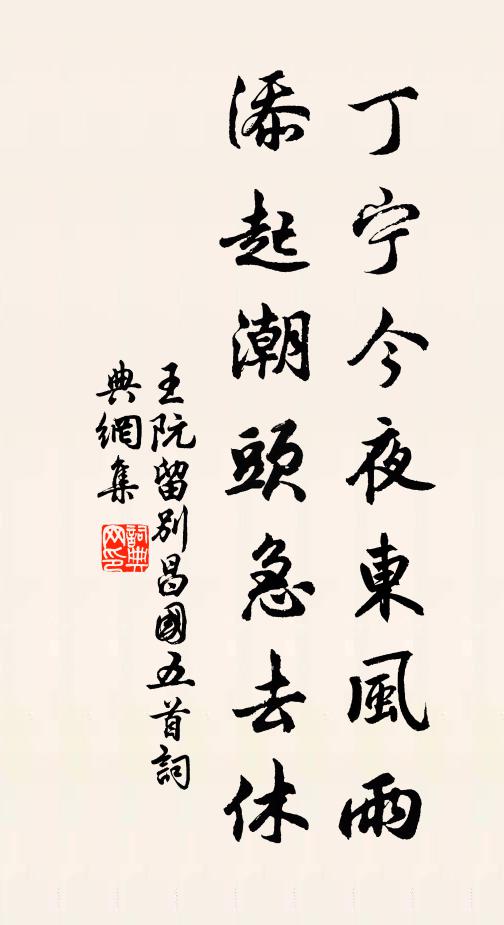 丁宁今夜東風雨
添起潮頭急去休
王阮留別昌國五首詞
典網集
詞典網印